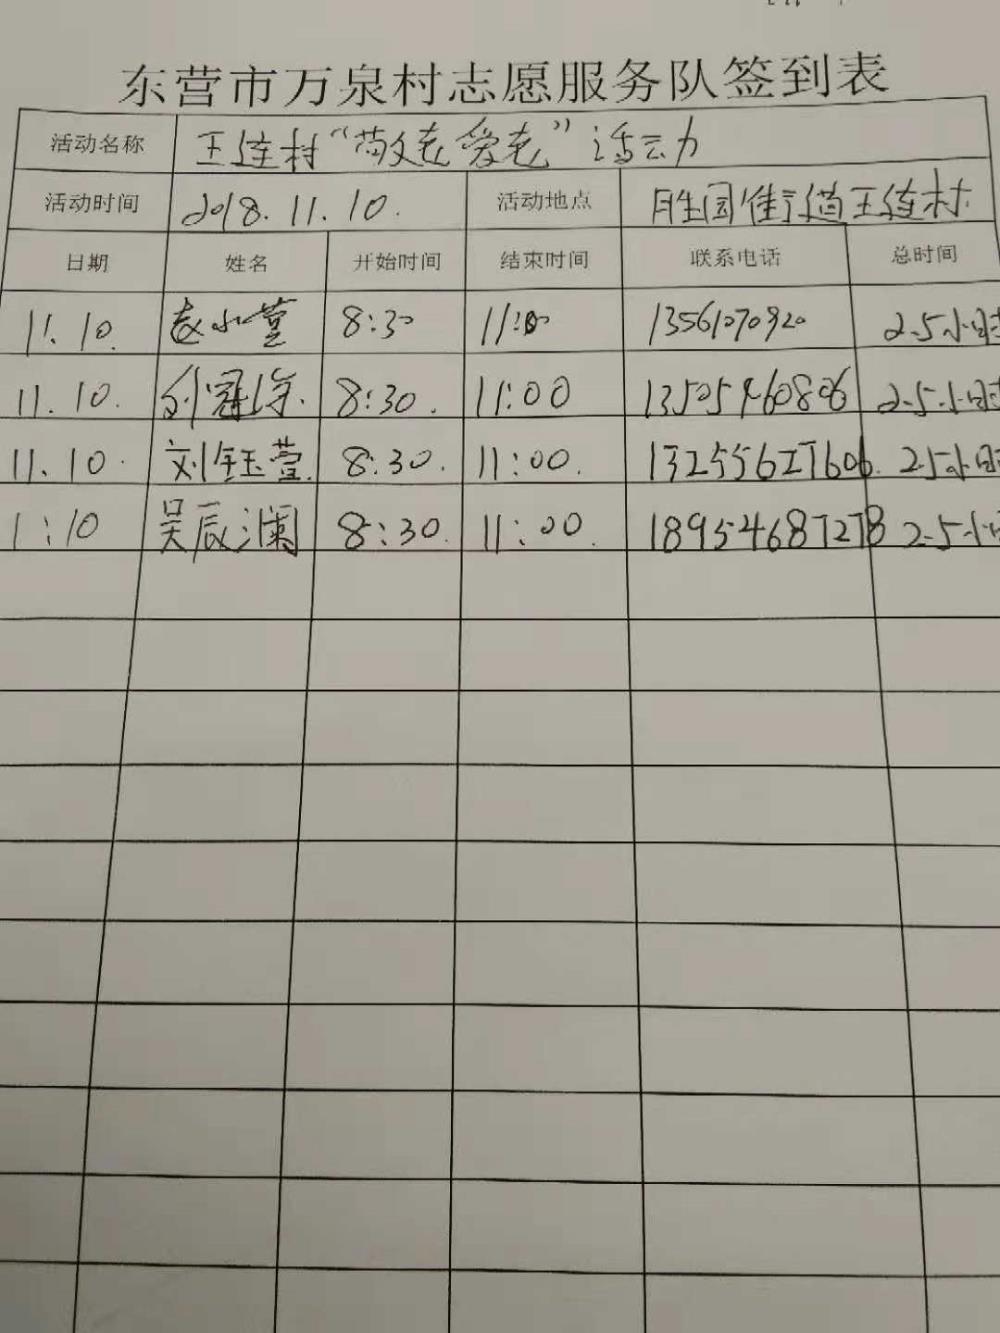 东营市万泉村志愿服务队签到表
活动名称 王连村“敬老爱老”活动
活动时间 2018.11.10. 活动地点 胜园街道王连村
日期 姓名 开始时间 结束时间 联系电话 总时间
11.10. 8:30 11:00 13561070920 2.5小时
11.10. 8:30. 11:00 13505460806 2.5小时
11.10. 刘钰萱. 8:30. 11:00. 2.5小时
1:10 吴辰澜 8:30. 11:00. 18954687278 2.5小时